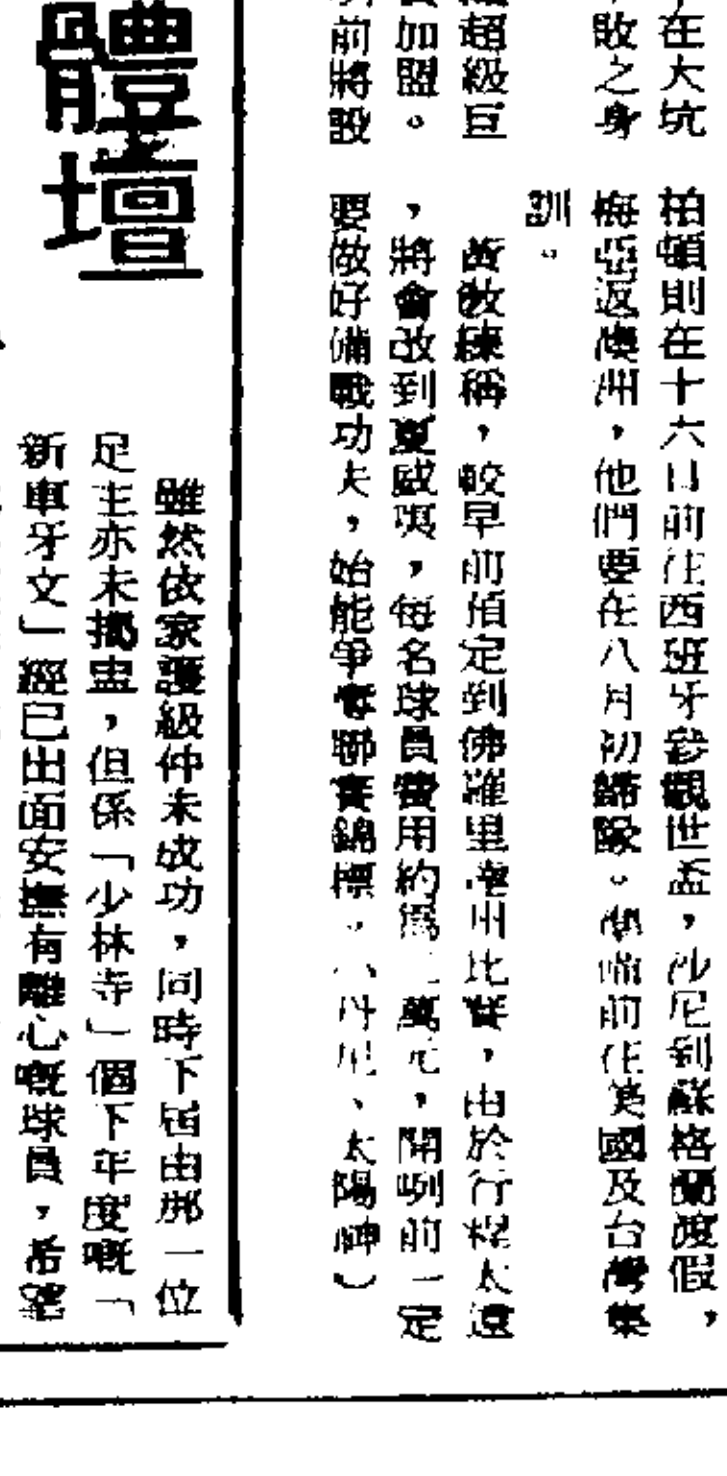 在大坑
敗之身
超級巨
加盟。
前將設
柏頓則在十六日前往西班牙參觀世盃,沙尼到蘇格蘭渡假,
梅亞返澳洲,他們要在八月初歸隊。準備前往英國及台灣集
訓。
黃教練稱,較早前預定到佛羅里達州比賽,由於行程太遠
,將會改到夏威夷,每名球員費用約為二萬元,開咧前一定
要做好備戰功夫,始能爭奪聯賽錦標。(丹尼、太陽神)
體壇
雖然依家護級仲未成功,同時下屆由那一位
足主亦未揭盅,但係「少林寺」個下年度嘅「
新車牙文」經已出面安撫有離心嘅球員,希望